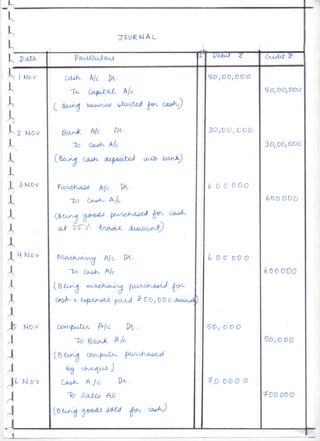 JOURNAL
Date Particulars Debit ₹ Credit ₹
1 Nov Cash A/c Dr. 80,00,000
To Capital A/c 80,00,000
( Being business started for cash)
2 Nov Bank A/c Dr. 30,00,000
To Cash A/c 30,00,000
(Being cash deposited into bank)
3 Nov Purchase A/c Dr. 6 00 000
To Cash A/c 600000
(Being goods purchased for cash
at 25% trade discount)
4 Nov Machinery A/c Dr. 6 00 000
To Cash A/c 600000
(Being machinery purchased for
cash & expenses paid ₹ 50,000
5 Nov Computer A/c Dr. 50,000
To Bank A/c 50,000
(Being computer purchased
by cheque)
6 Nov Cash A/c Dr. 700000
To Sales A/c 700000
(Being goods sold for cash)